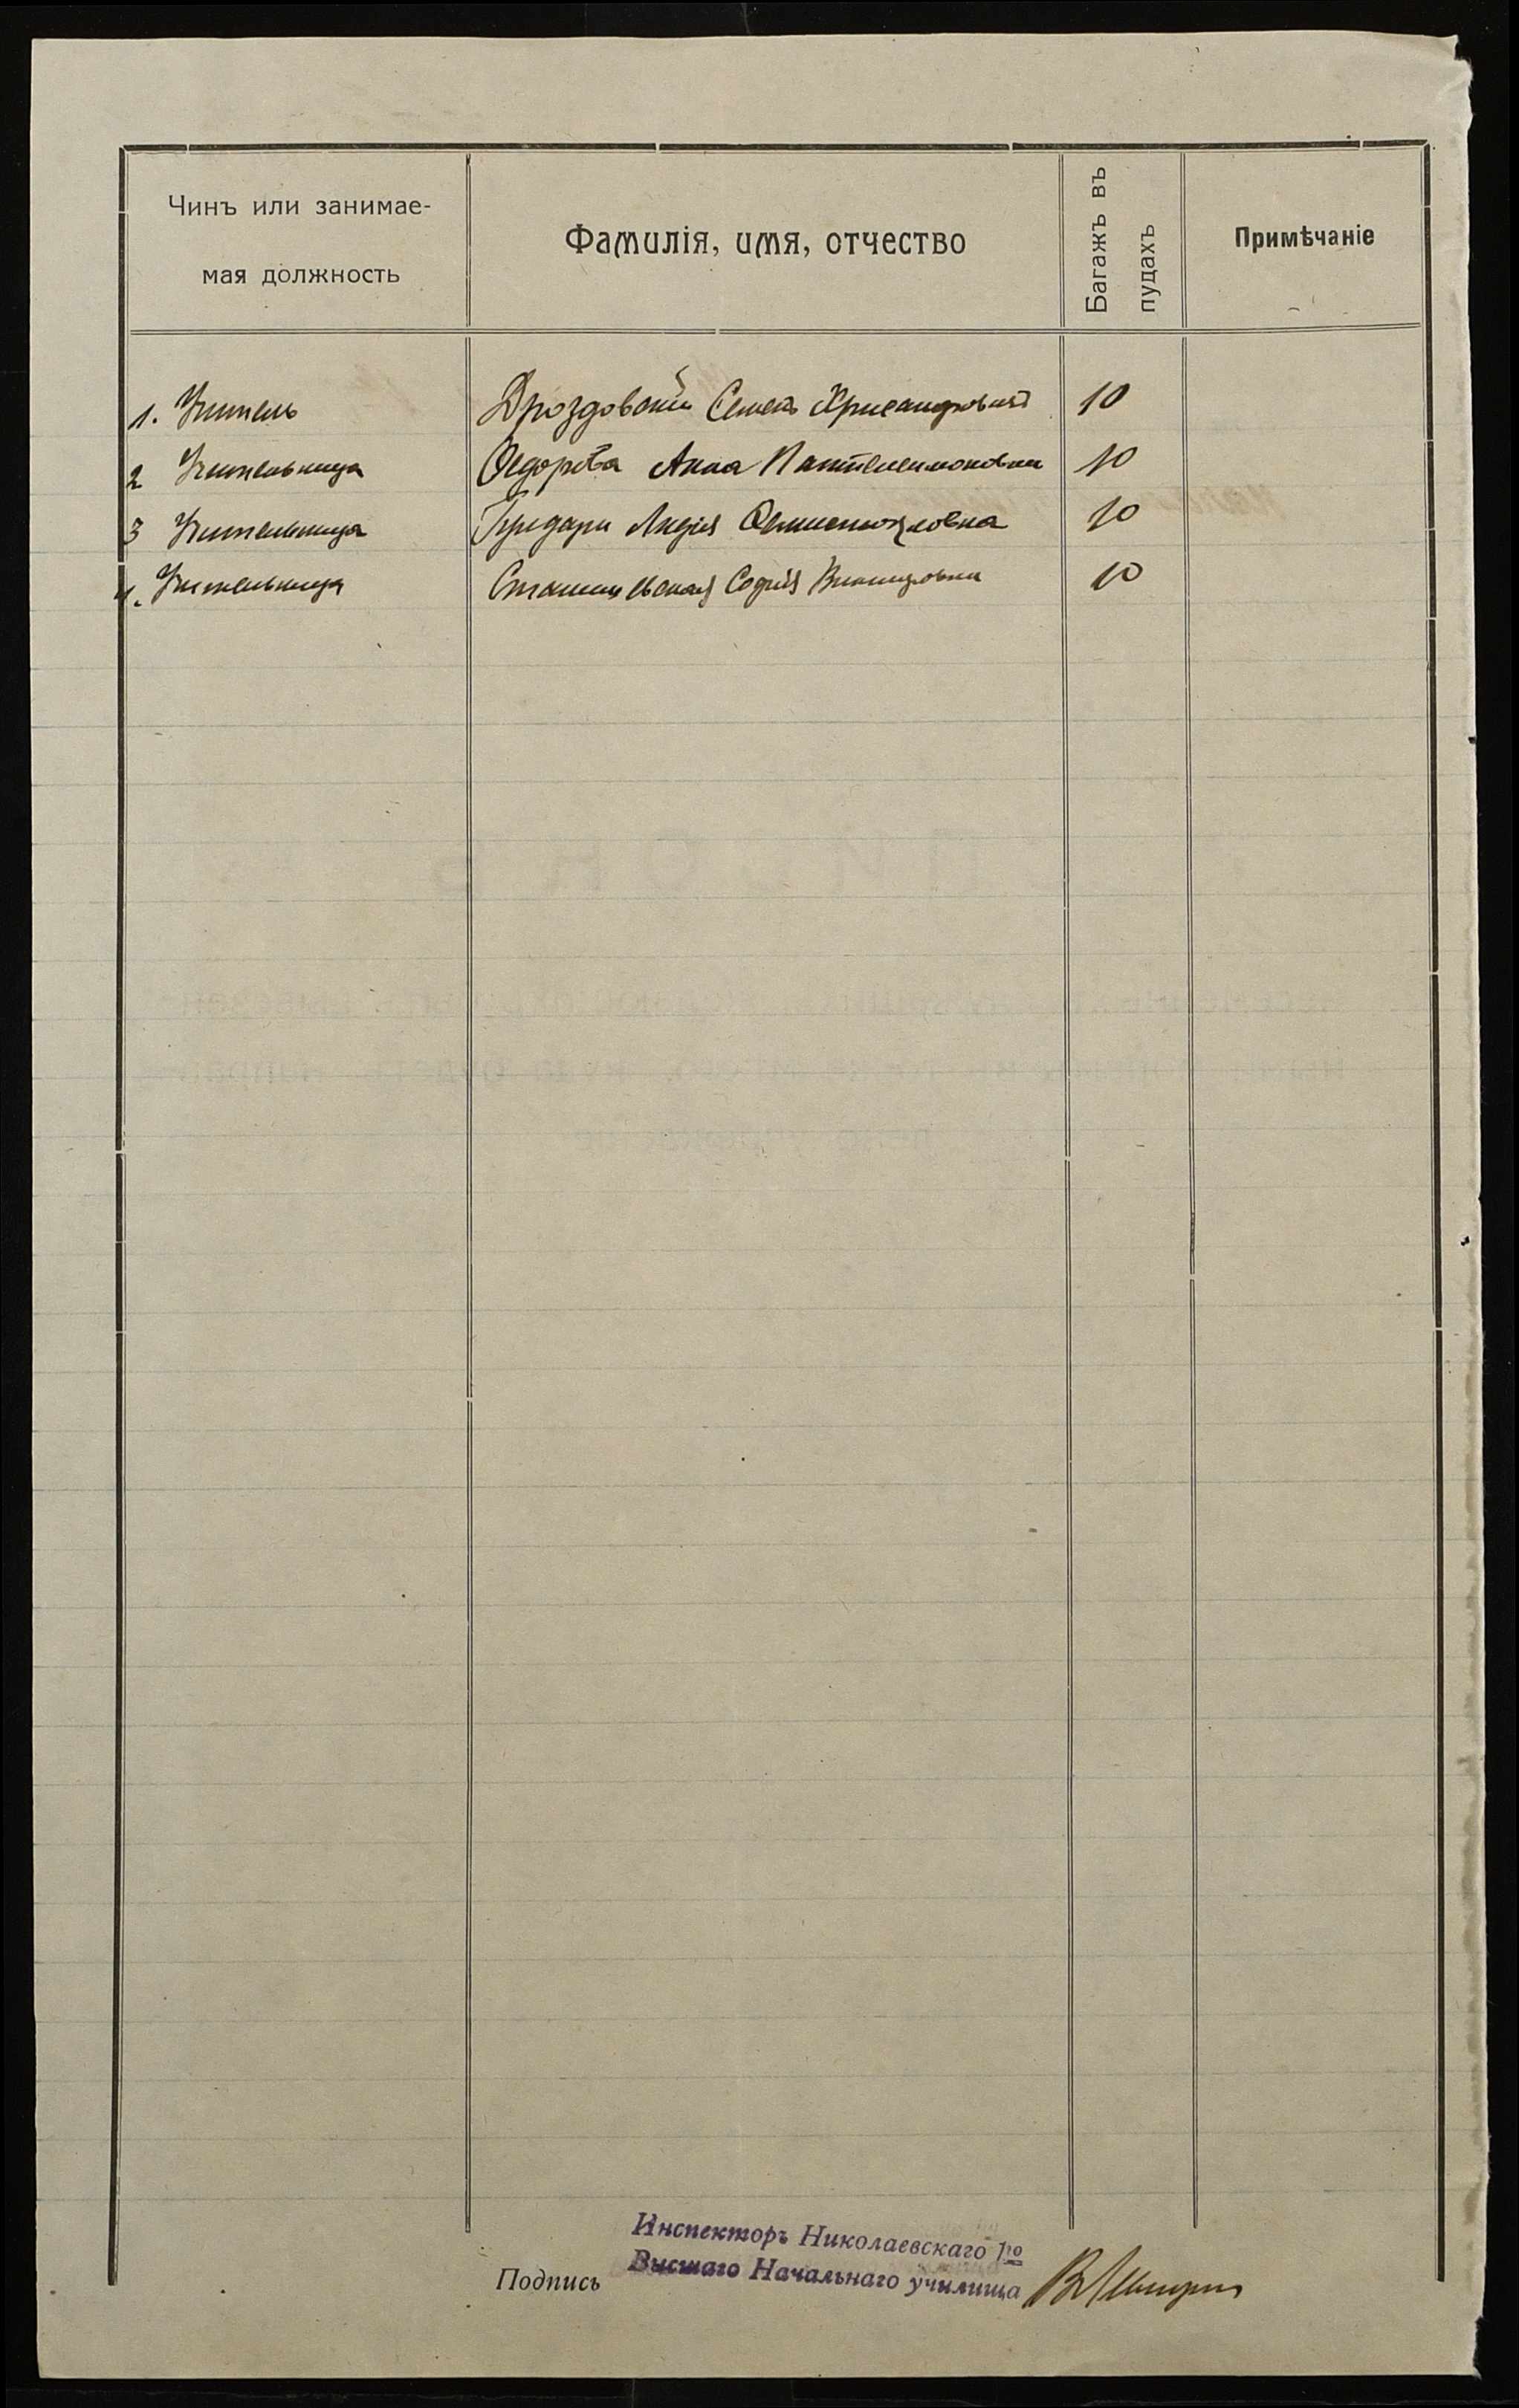 Чинъ или занимае-
мая должность
Фамилія, имя, отчество
Багажъ въ
пудахъ
Примѣчаніе
1. Учитель Дроздовскій Семенъ Хрисанфовичъ 10
2 Учительница Федорова Анна Пантелеимоновна 10
3 Учительница Лидія 10
4. Учительница Софія 10
Инспекторъ Николаевскаго 1го
Высшаго Начальнаго училища
Подпись